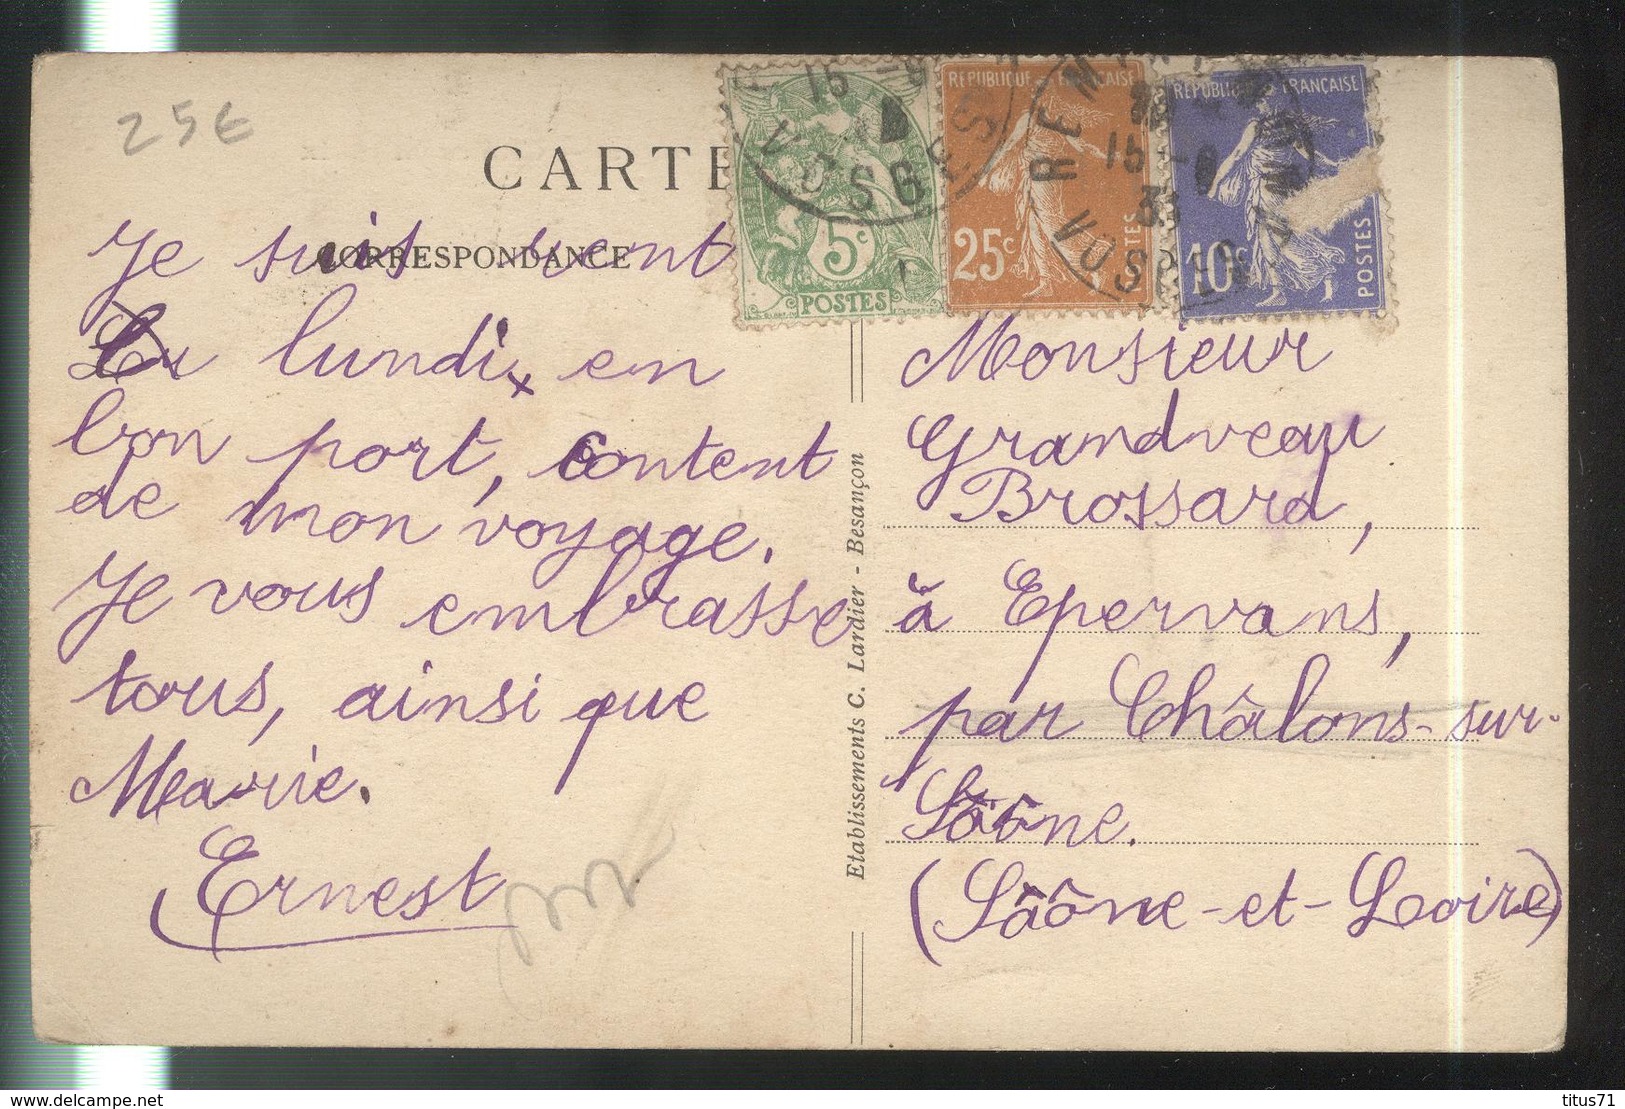 25€
CARTE
CORRESPONDANCE
Je suis vent
lundi, en
bon port, content
de mon voyage.
Je vous embrasse
tous, ainsi que
Marie.
Ernest
Etablissements C. Lardier - Besançon
5c
POSTES
15 -9
VOSGES
REPUBLIQUE FRANÇAISE
25c
POSTES
REMIREMONT
15 -9
33
VOSGES
REPUBLIQUE FRANÇAISE
10c
POSTES
Monsieur
Grandveau
Brossard,
à Epervans,
par Châlons-sur-
Sâône.
(Sâône-et-Loire)
www.delcampe.net
titus71